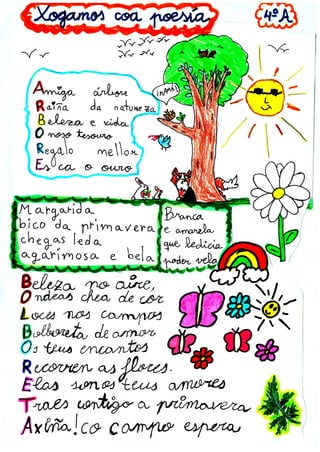 Xogamos coa poesía
4º A
Amiga árbore
Raíña da natureza
Beleza e vida
O noso tesouro
Regalo mellor
Es ca o ouro
¡MAMÁ!
Margarida
bico da primavera
chegas leda
agarimosa e bela
Branca
e amarela
que ledicia
poder vela
Beleza no aire,
Ondeas chea de cor
Loces nos campos
Bolboreta de amor
Os teus encantos
Recorren as flores.
Elas son os teus amores
Traes contigo a primavera
Axiña! co campo espera